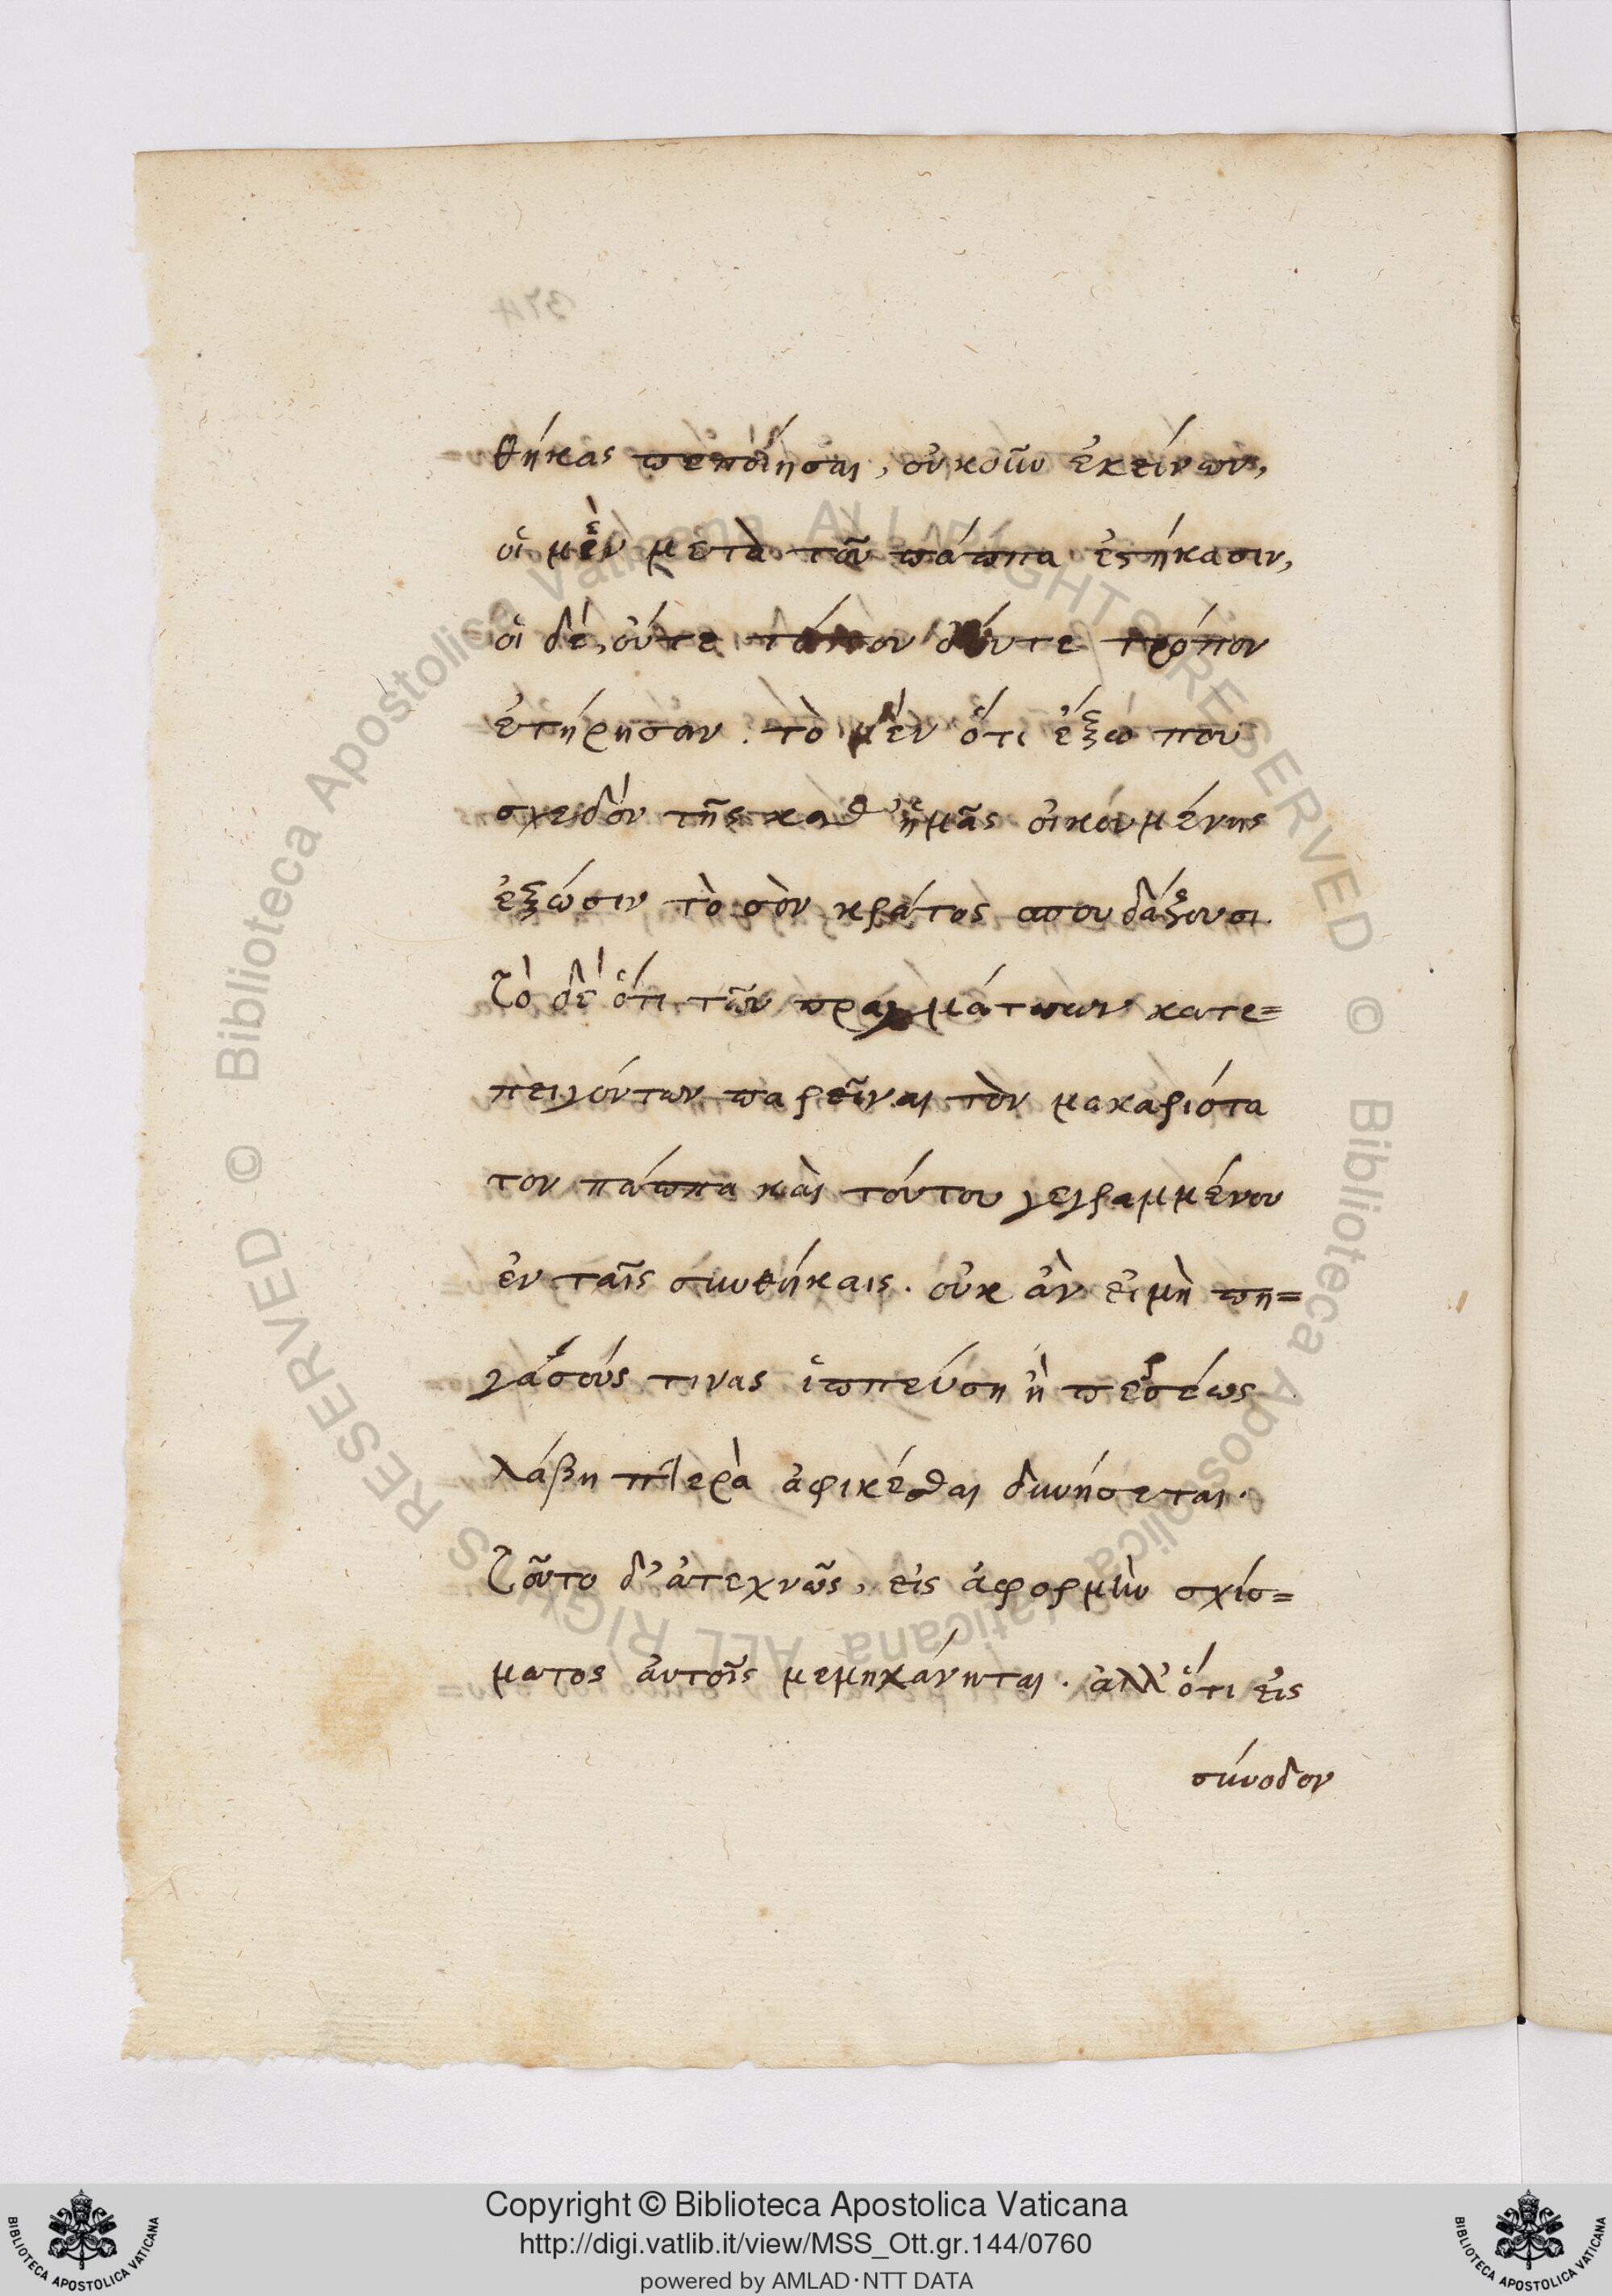 θήκας πεποίησαι, οὐκοῦν ἐκείνων,
οἱ μὲν μετὰ τοῦ πάππα ἑστήκασιν,
οἱ δὲ, οὔτε τόπον οὔτε τρόπον
ἐτήρησαν. τὸ μὲν ὅτι ἔξω που
σχεδὸν τῆς καθ' ἡμᾶς οἰκουμένης
ἐξώσιν τὸ σὸν κράτος σπουδάζουσι.
Τὸ δὲ ὅτι τῶν πραγμάτων κατε=
πειγόντων παρεῖναι τὸν μακαριώτα
τον πάππα καὶ τούτου γεγραμμένου
ἐν ταῖς συνθήκαις. οὐκ ἂν εἰμὴ πη=
γάσους τινας ἱππεύση ἢ περσέως
λάβη πτερὰ ἀφικέσθαι δυνήσεται.
Τοῦτο δ' ἀτεχνῶς, εἰς ἀφορμὴν σχίσ=
ματος ἀυτοῖς μεμηχάνηται. ἀλλ' ὅτι εἰς
σύνοδον
Copyright © Biblioteca Apostolica Vaticana
http://digi.vatlib.it/view/MSS_Ott.gr.144/0760
powered by AMLAD·NTT DATA
BIBLIOTECA APOSTOLICA VATICANA
BIBLIOTECA APOSTOLICA VATICANA
© Biblioteca Apostolica Vaticana ALL RIGHTS RESERVED
© Biblioteca Apostolica Vaticana ALL RIGHTS RESERVED